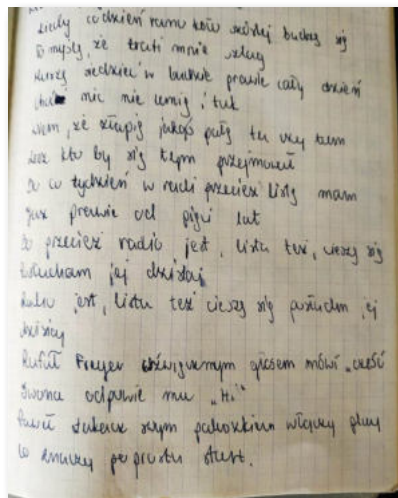 kiedy codzień rano ków szkolej budzę się
To myślę, że trafi mnie szlag
Muszę siedzieć w budzie prawie cały dzień
choć nic nie umię i tak
wiem, że złapię jakąś pałę tu czy tam
lecz kto by się tym przejmował
Bo co tydzień w radi przecież listę mam
Już prawie od pięciu lat
Bo przecież radio jest, lista też, cieszę się
Posłucham jej dzisiaj
Radio jest, lista też cieszę się posłucham jej
dzisiaj
Rafał Freyer dźwięcznym głosem mówi „cześć
Iwona odpowie mu „Hi"
Paweł Łukasz swym paluszkiem włączy play
to znaczy poprostu start.